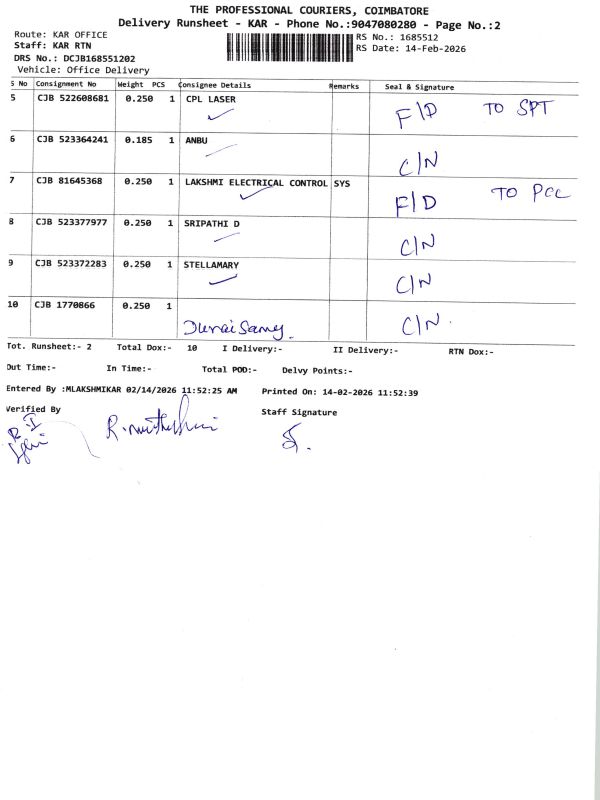 THE PROFESSIONAL COURIERS, COIMBATORE
Delivery Runsheet - KAR - Phone No.:9047080280 - Page No.:2
Route: KAR OFFICE
RS No.: 1685512
Staff: KAR RTN
RS Date: 14-Feb-2026
DRS No.: DCJB168551202
Vehicle: Office Delivery
S No Consignment No Weight PCS Consignee Details Remarks Seal & Signature
5 CJB 522608681 0.250 1 CPL LASER F/D TO SPT
6 CJB 523364241 0.185 1 ANBU C/N
7 CJB 81645368 0.250 1 LAKSHMI ELECTRICAL CONTROL SYS F/D TO PCC
8 CJB 523377977 0.250 1 SRIPATHI D C/N
9 CJB 523372283 0.250 1 STELLAMARY C/N
10 CJB 1770866 0.250 1 Duraisamy. C/N.
Tot. Runsheet:- 2 Total Dox:- 10 I Delivery:- II Delivery:- RTN Dox:-
Out Time:- In Time:- Total POD:- Delvy Points:-
Entered By :MLAKSHMIKAR 02/14/2026 11:52:25 AM Printed On: 14-02-2026 11:52:39
Verified By Staff Signature